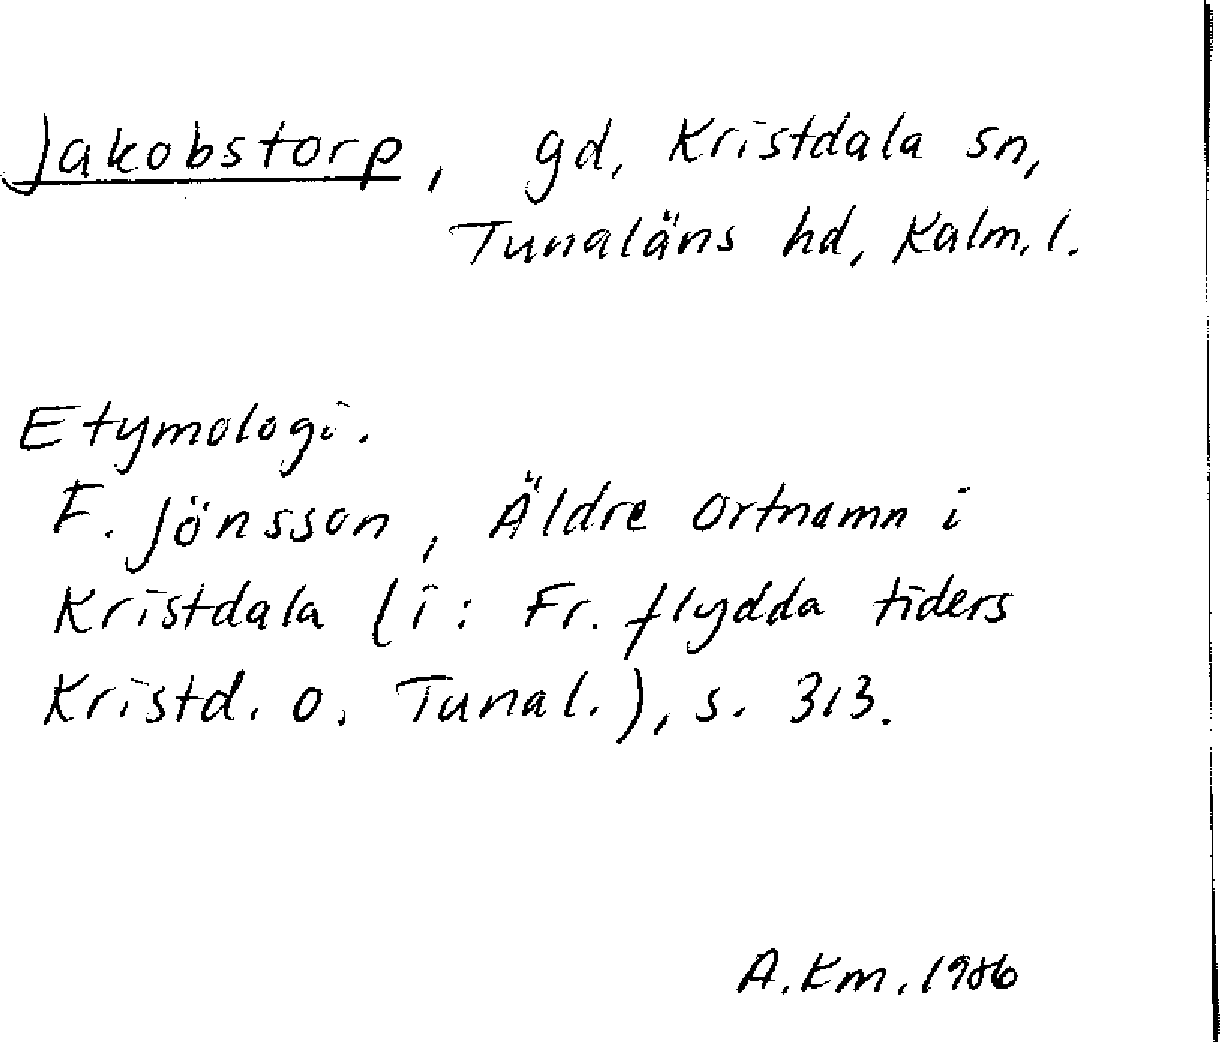 Jakobstorp, gd, Kristdala sn,
Tunaläns hd, Kalm. l.
Etymologi.
F. Jönsson, Äldre ortnamn i
Kristdala (i: Fr. flydda tiders
Kristd. o. Tunal.), s. 313.
A. Km. 1986